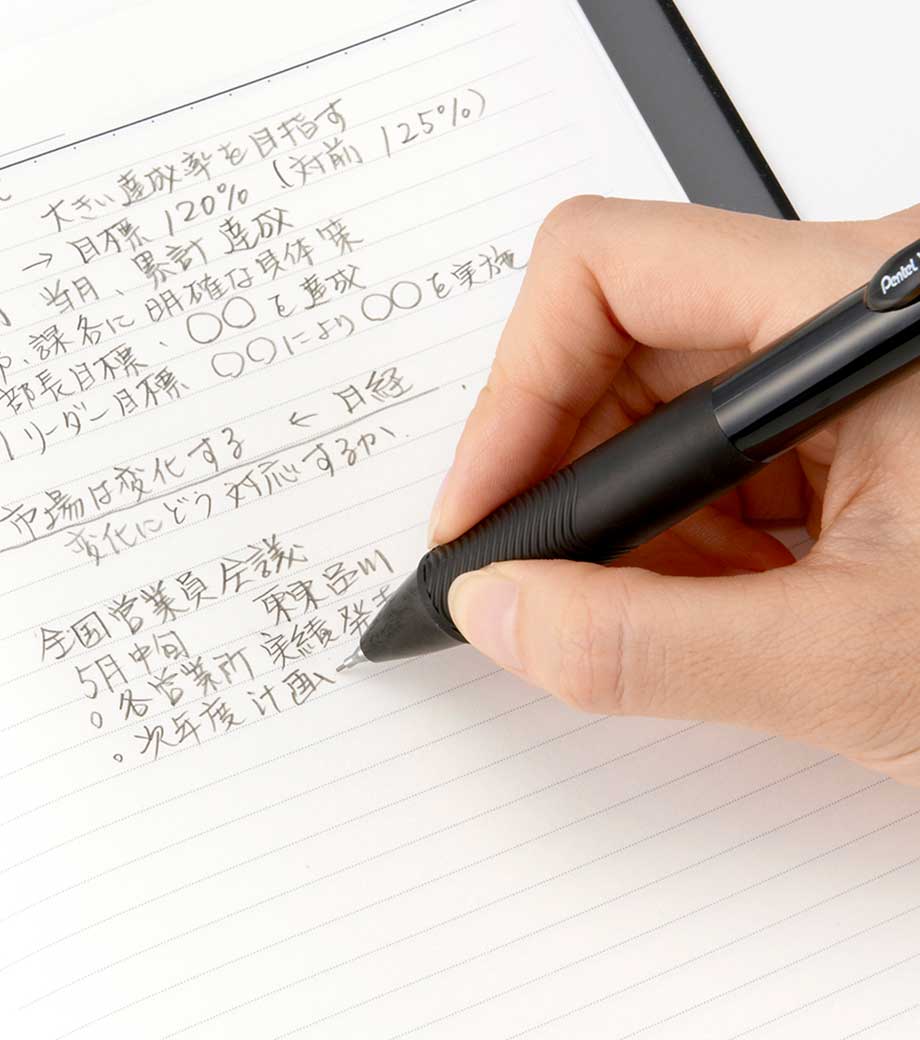 大きい達成率を目指す
→目標 120% (対前 125%)
当月、累計達成
、課各に明確な具体策
部長目標、〇〇を達成
リーダー目標 〇〇により〇〇を実施
市場は変化する ← 日経
変化にどう対応するか、
全国営業員会議
5月中旬 東京品川
○各営業所 実績発表
○次年度計画
Pentel